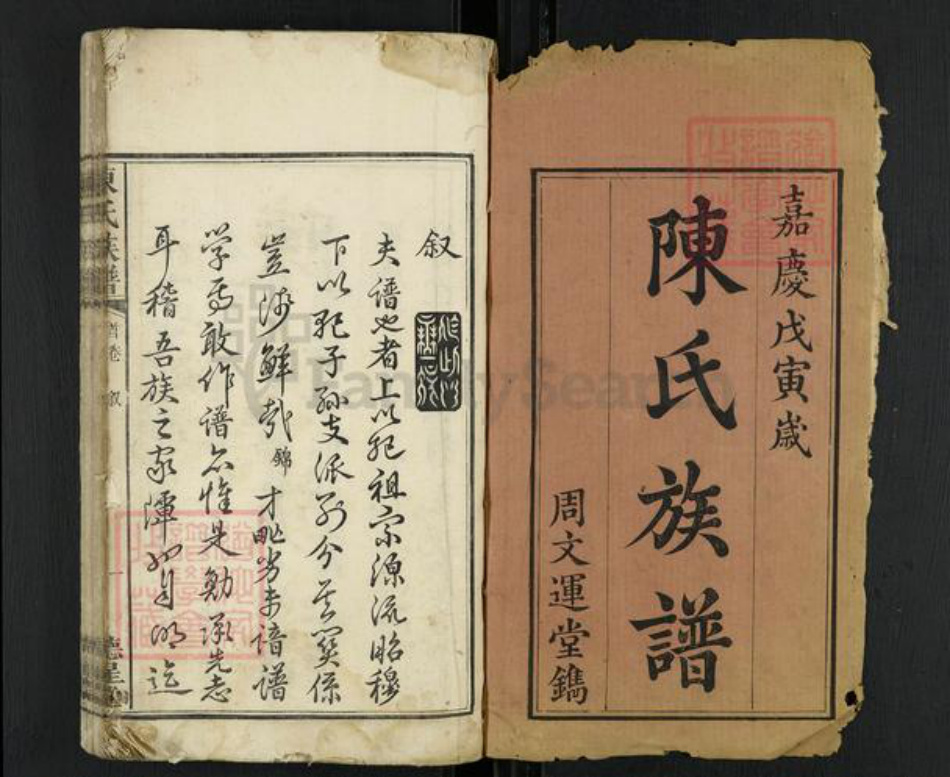 嘉慶戊寅歲
陳氏族譜
周文運堂鐫
叙
夫谱也者上以紀祖宗源流昭穆
下以紀子孫支派別分其関係
豈淺鮮哉錦才毗劣未谙譜
学焉敢作谱亦惟是勉承先志
耳稽吾族之家譚如自以迄
陳氏族譜
首卷
叙
一
FamilySearch